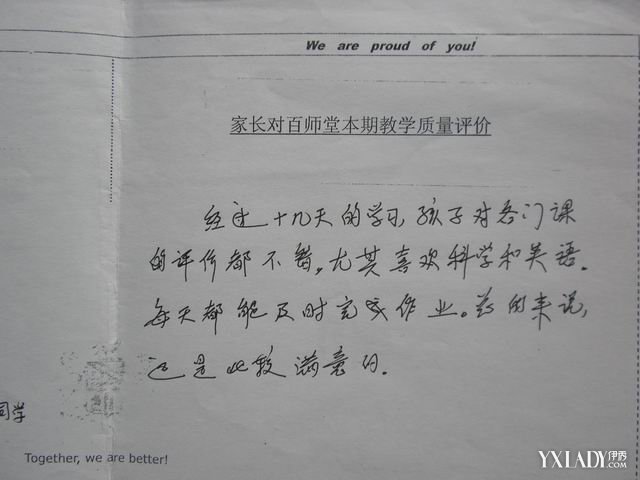 We are proud of you!
家长对百师堂本期教学质量评价
经过十几天的学习,孩子对各门课
的评价都不错。尤其喜欢科学和英语.
每天都能及时完成作业。总的来说,
还是比较满意的.
同学
Together, we are better!
YXLADY伊秀.com